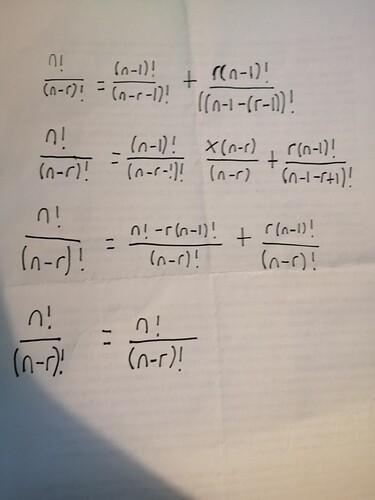 n!/(n-r)! = (n-1)!/(n-r-1)! + r(n-1)!/((n-1-(r-1))!
n!/(n-r)! = (n-1)!/(n-r-1)! x(n-r)/(n-r) + r(n-1)!/(n-1-r+1)!
n!/(n-r)! = n!-r(n-1)!/(n-r)! + r(n-1)!/(n-r)!
n!/(n-r)! = n!/(n-r)!